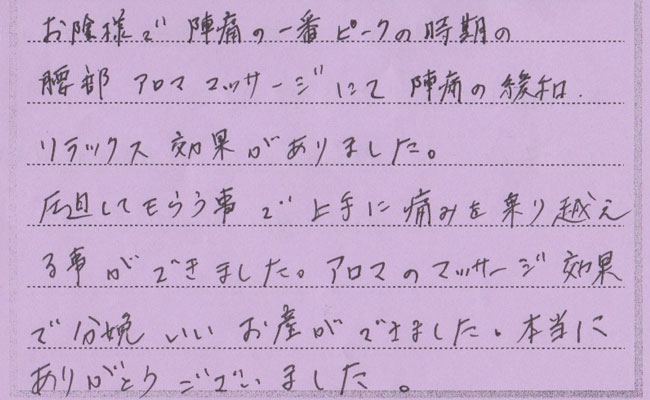 お陰様で 陣痛の一番ピークの時期の
腰部 アロママッサージにて 陣痛の緩和.
リラックス 効果がありました。
圧迫してもらう事で上手に痛みを乗り越え
る事ができました。アロマのマッサージ効果
で分娩 いい お産ができました。本当に
ありがとうございました。